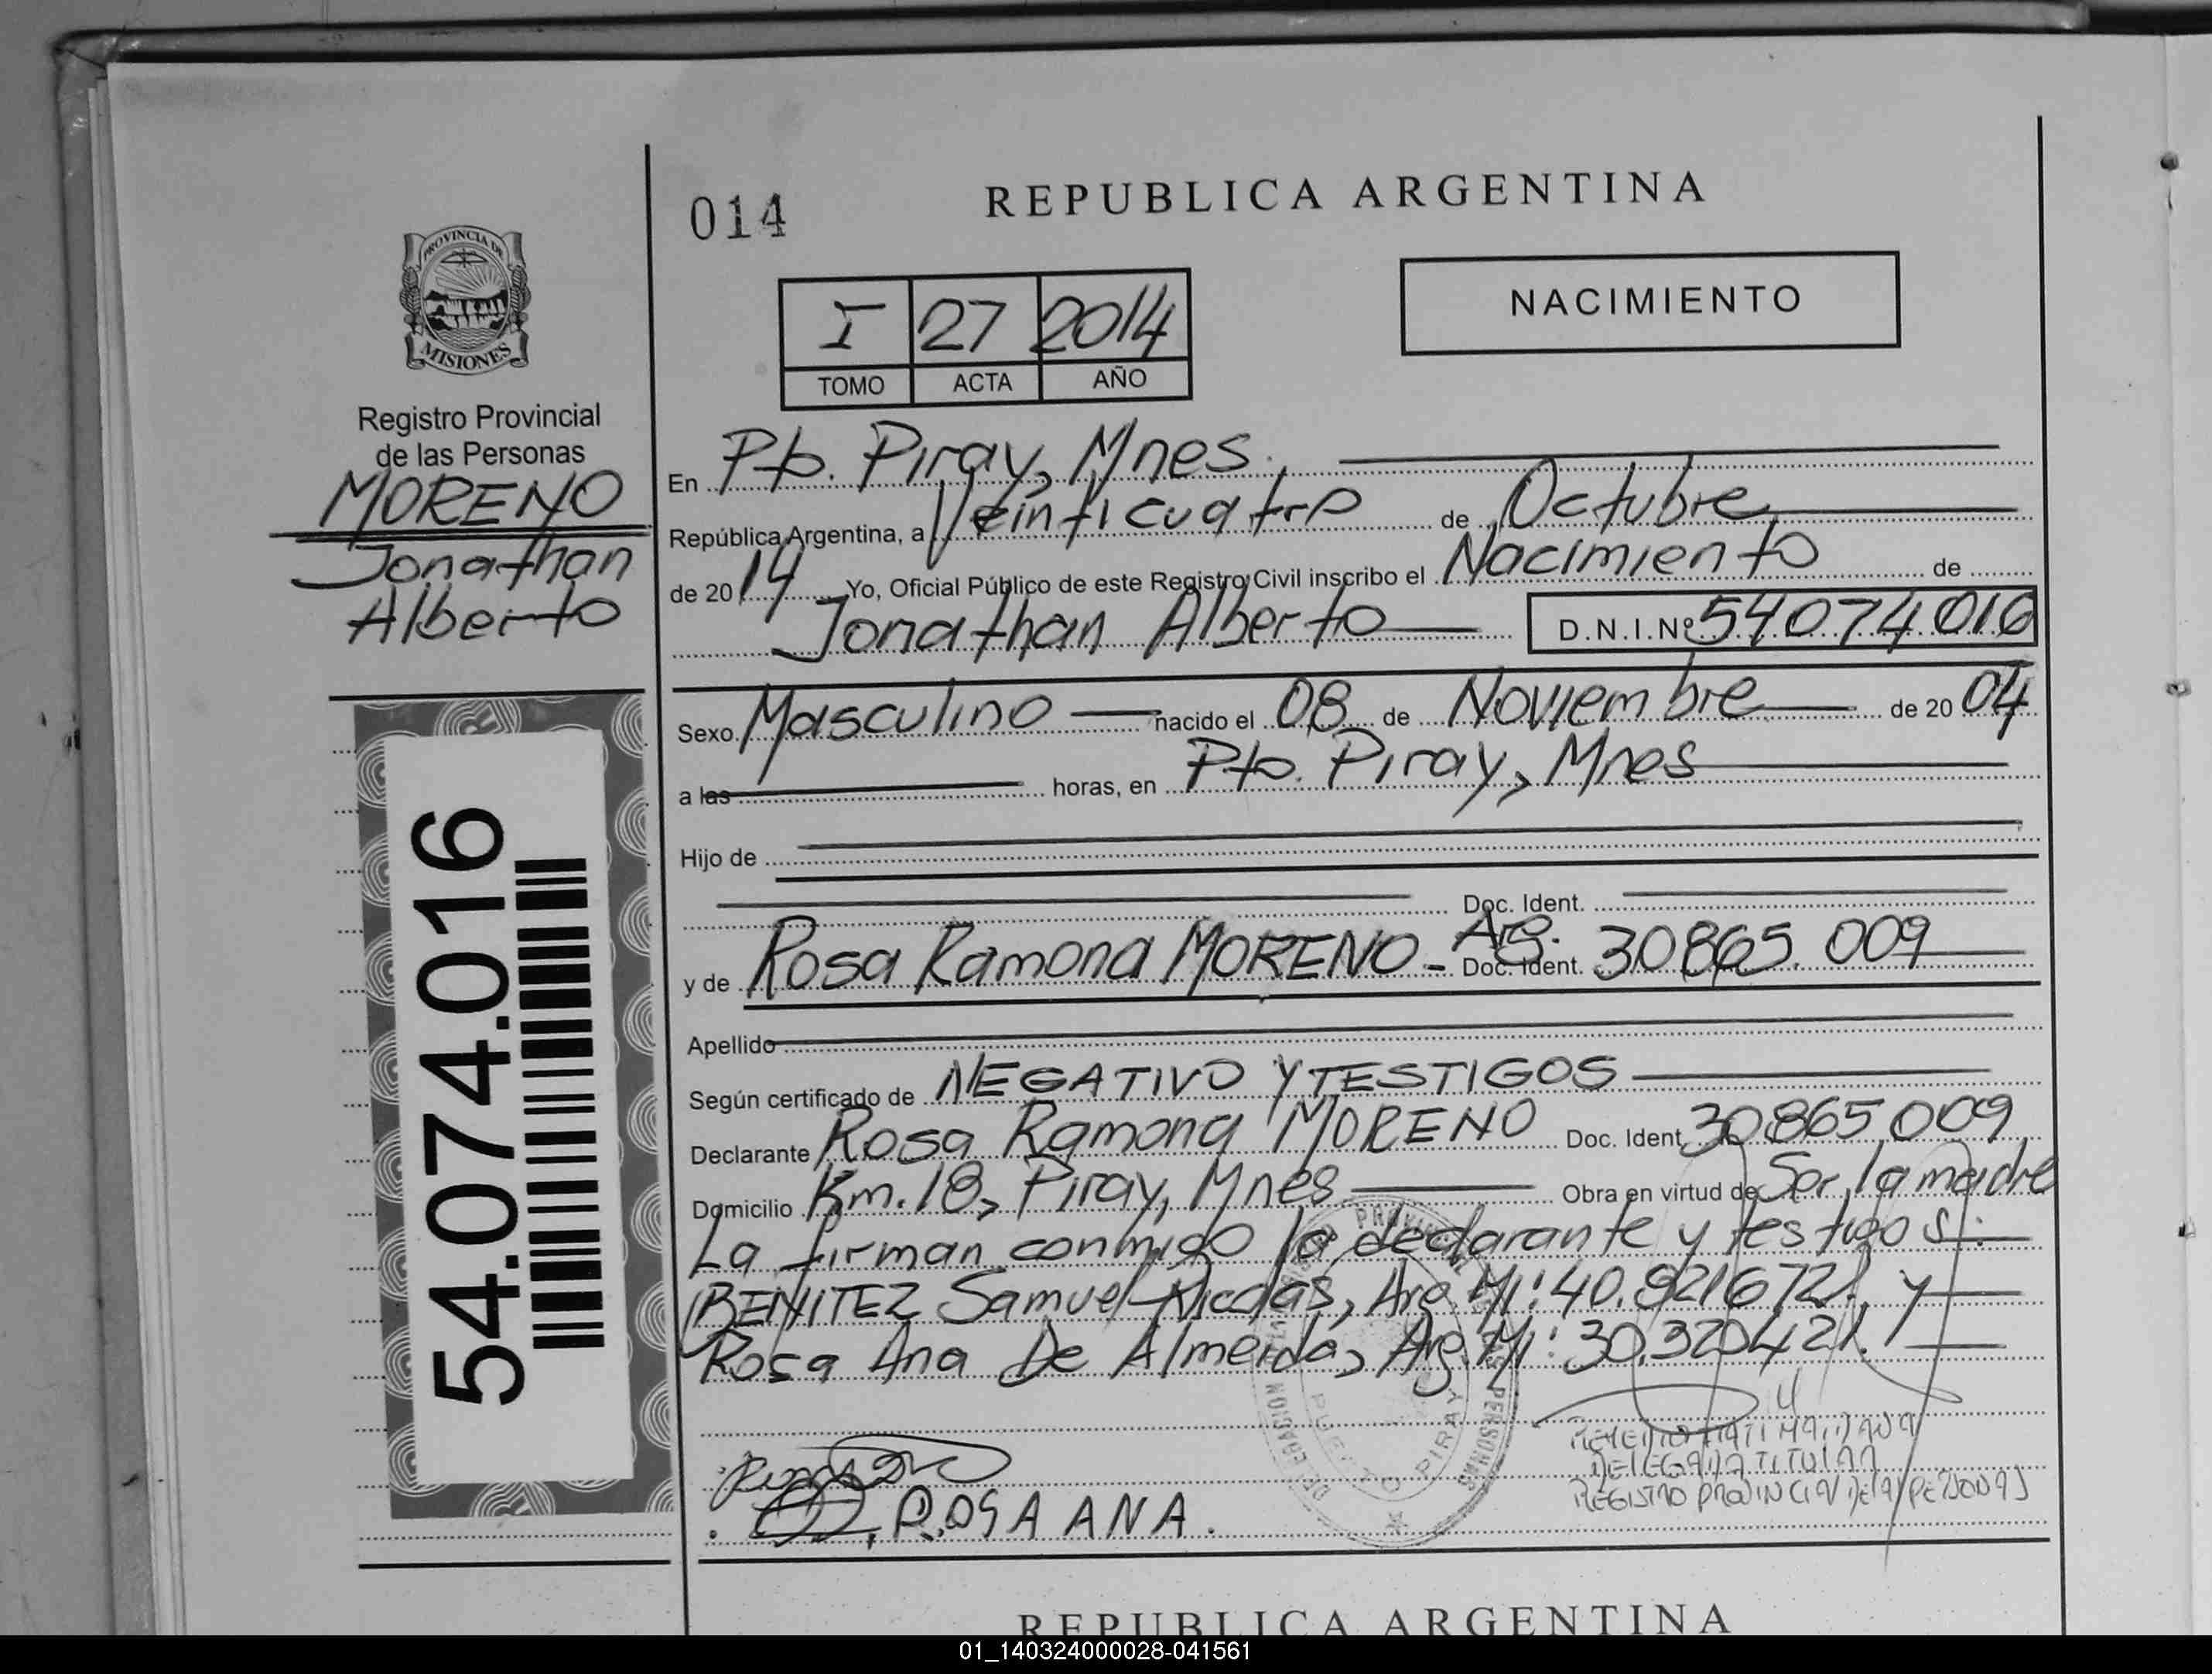 014
REPUBLICA ARGENTINA
PROVINCIA DE
MISIONES
Registro Provincial
de las Personas
MORENO
Jonathan
Alberto
54.074.016
I 27 2014
TOMO ACTA AÑO
NACIMIENTO
En Pto. Piray, Mnes.
República Argentina, a Veinticuatro de Octubre
de 2014 Yo, Oficial Público de este Registro Civil inscribo el Nacimiento de
Jonathan Alberto D.N.I.Nº 54074016
Sexo Masculino nacido el 08 de Noviembre de 2004
a las horas, en Pto. Piray, Mnes
Hijo de
Doc. Ident.
y de Rosa Ramona MORENO - Arg. Doc. Ident. 30865.009
Apellido
Según certificado de NEGATIVO Y TESTIGOS
Declarante Rosa Ramona MORENO Doc. Ident. 30.865.009
Domicilio Km. 18, Piray, Mnes Obra en virtud de Ser la madre
La firman conmigo la declarante y testigos:
BENITEZ Samuel Nicolas, Arg. MI: 40.9216721 y
Rosa Ana De Almeida, Arg. MI: 30.320421.
PUERTO PIRAY
DELEGADA TITULAR
REGISTRO PROVINCIAL DE LAS PERSONAS
ROSA ANA.
REPUBLICA ARGENTINA
01_140324000028-041561